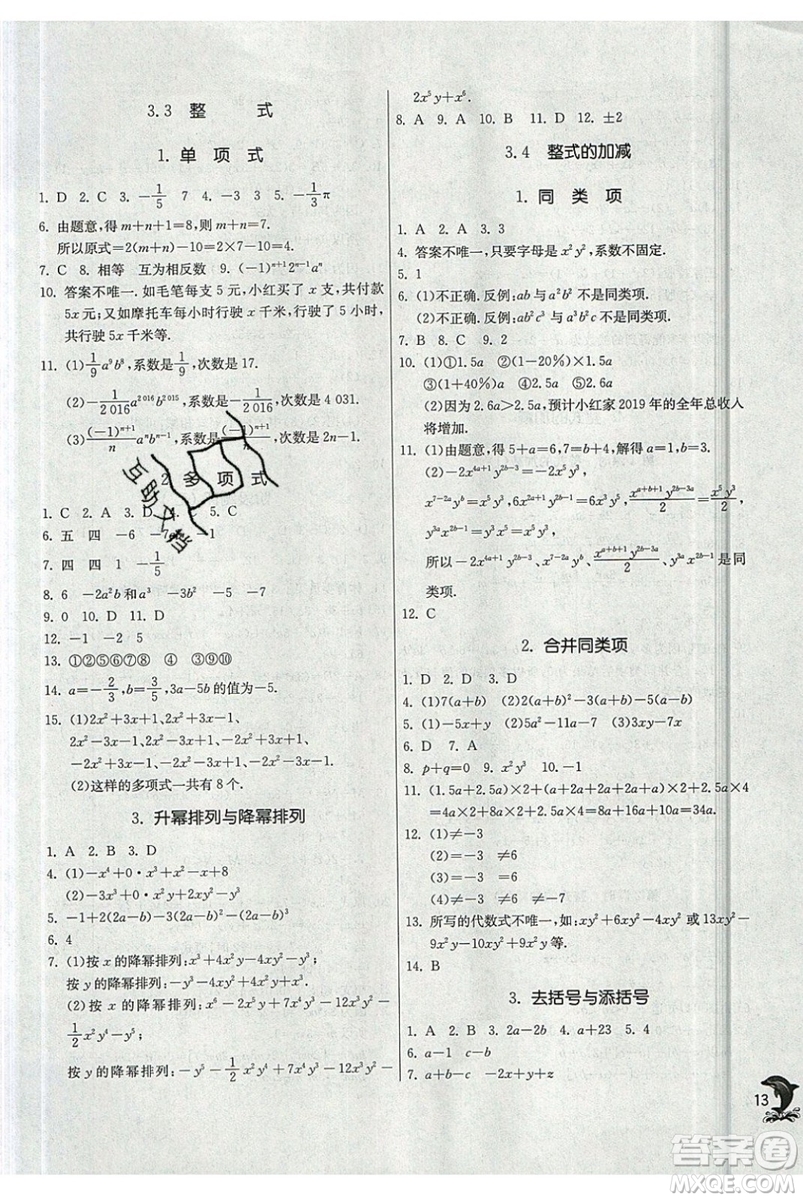 3.3 整 式
1. 单 项 式
1. D 2. C 3. -1/5 7 4. -3 3 5. -1/3π
6. 由题意,得 m+n+1=8,则 m+n=7.
所以原式=2(m+n)-10=2×7-10=4.
7. C 8. 相等 互为相反数 9. (-1)ⁿ⁺¹2ⁿ⁻¹aⁿ
10. 答案不唯一. 如毛笔每支 5 元,小红买了 x 支,共付款
5x 元;又如摩托车每小时行驶 x 千米,行驶了 5 小时,
共行驶 5x 千米等.
11. (1) 1/9 a⁹b⁸,系数是 1/9,次数是 17.
(2) -1/2 016 a²⁰¹⁶b²⁰¹⁵,系数是 -1/2 016,次数是 4 031.
(3) (-1)ⁿ⁺¹/n aⁿbⁿ⁻¹,系数是 (-1)ⁿ⁺¹/n,次数是 2n-1.
2. 多 项 式
1. C 2. A 3. D 4. C 5. C
6. 五 四 -6 -7
7. 四 四 1 -1/5
8. 6 -2a²b 和 a³ -3 -2a²b
9. 0 10. D 11. D
12. -1 -2 5
13. ①②⑤⑥⑦⑧ ④ ③⑨⑩
14. a=-2/3,b=3/5,3a-5b 的值为-5.
15. (1)2x²+3x+1、2x²+3x-1、
2x²-3x-1、2x²-3x+1、-2x²+3x+1、
-2x²+3x-1、-2x²-3x+1、-2x²-3x-1.
(2)这样的多项式一共有 8 个.
3. 升幂排列与降幂排列
1. A 2. B 3. D
4. (1)-x⁴+0·x³+x²-x-2
(2)-3x⁴-x³+0·x²+x-2
5. -1+2(2a-b)-5(2a-b)²-3(2a-b)³
6. 4
7. (1)按 x 的降幂排列:x³+4x²y-4xy²-y³;
按 y 的降幂排列:-y³-4xy²+4x²y+x³.
(2)按 x 的降幂排列:x⁶+2x⁵y+7x⁴y³-12x³y⁴-
1/2x²y²-y⁵;
按 y 的降幂排列:-y⁵-12x³y⁴+7x⁴y³-1/2x²y²+
2x⁵y+x⁶.
8. A 9. A 10. B 11. D 12. ±2
3.4 整式的加减
1. 同 类 项
1. A 2. A 3. 3
4. 答案不唯一,只要字母是 x²y²,系数不固定.
5. 1
6. (1)不正确. 反例:ab 与 a²b² 不是同类项.
(2)不正确. 反例:ab²c³ 与 a³b²c 不是同类项.
7. B 8. C 9. 2
10. (1)①1.5a ②(1-20%)×1.5a
③(1+40%)a ④2.5a ⑤2.6a
(2)因为 2.6a>2.5a,预计小红家 2019 年的全年总收人
将增加.
11. (1)由题意,得 5+a=6,7=4+b,解得 a=1,b=3.
(2)-2x⁴ᵃ⁺¹y²ᵇ⁻³=-2x⁵y³,
x⁷⁻²ᵃy=x⁵y, 6x²ᵃy²ᵇ⁻³ᵃ=6x²y³, xᵃ⁺ᵇ⁺¹y²ᵇ⁻³ᵃ/2=x⁵y³/2,
y³ᵃx²ᵇ⁻¹=y³x⁵,
所以-2x⁴ᵃ⁺¹y²ᵇ⁻³、xᵃ⁺ᵇ⁺¹y²ᵇ⁻³ᵃ/2、y³ᵃx²ᵇ⁻¹是同
类项.
12. C
2. 合并同类项
1. A 2. D 3. D
4. (1)7(a+b) (2)2(a+b)²-3(a-b)-5(a-b)²
5. (1)-5x+y (2)5a²-11a-7 (3)3xy-7x
6. D 7. A
8. p+q=0 9. x²y 10. -1
11. (1.5a+2.5a)×2+(a+2.5a)×2×2+2.5a×4
=4a×2+3.5a×4+10a=8a+14a+10a=32a.
12. (1)≠-3
(2)=-3 ≠6
(3)=-3 =6
(4)≠-3 ≠-7 =6
13. 所写的代数式不唯一,如:xy²+6xy²-4xy²或 13xy²-
9x²y-10xy²+9x²y 等.
14. B
3. 去括号与添括号
1. A 2. B 3. 2a-2b 4. a+23 5. 4
6. a-1 c-b
7. a+b+c -2x+y+z
13
互助文档
答案圈
MXQE.COM